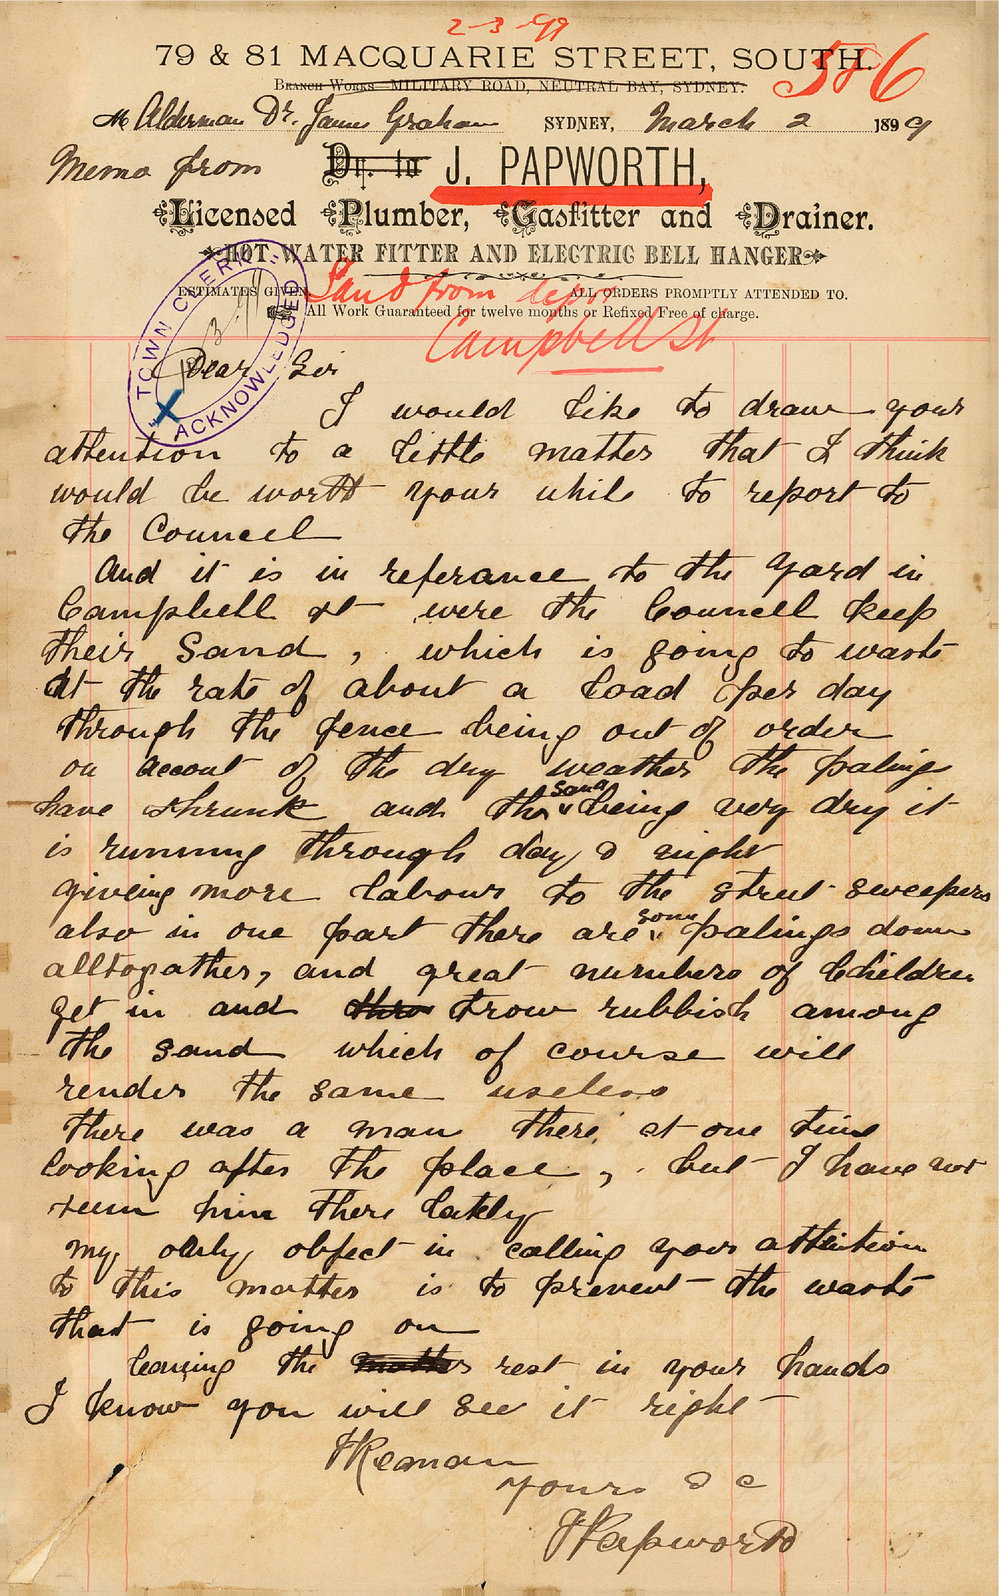 2-3-99
79 & 81 MACQUARIE STREET, SOUTH.
586
BRANCH WORKS—MILITARY ROAD, NEUTRAL BAY, SYDNEY.
M Alderman Dr. James Graham SYDNEY, March 2 1899
Memo from Dr. to J. PAPWORTH,
Licensed Plumber, Gasfitter and Drainer.
HOT WATER FITTER AND ELECTRIC BELL HANGER
ESTIMATES GIVEN. ALL ORDERS PROMPTLY ATTENDED TO.
Sand from depot
All Work Guaranteed for twelve months or Refixed Free of charge.
Campbell St
TOWN CLERK
ACKNOWLEDGED
Dear Sir
I would like to draw your
attention to a little matter that I think
would be worth your while to report to
the Councell
And it is in referance to the Yard in
Campbell st were the Councell keep
their Sand, which is going to waste
At the rate of about a load per day
through the fence being out of order
on account of the dry weather the palings
have shrunk and the sand being very dry it
is running through day & night
giveing more labour to the street sweepers
also in one part there are some palings down
alltogather, and great numbers of Children
get in and thro trow rubbish among
the sand which of course will
render the same useless
there was a man there, at one time
looking after the place, but I have not
seen him there lately
my only object in calling your attention
to this matter is to prevent the waste
that is going on
leaving the matters rest in your hands
I know you will see it right
I Reman
Yours & c
J Papworth